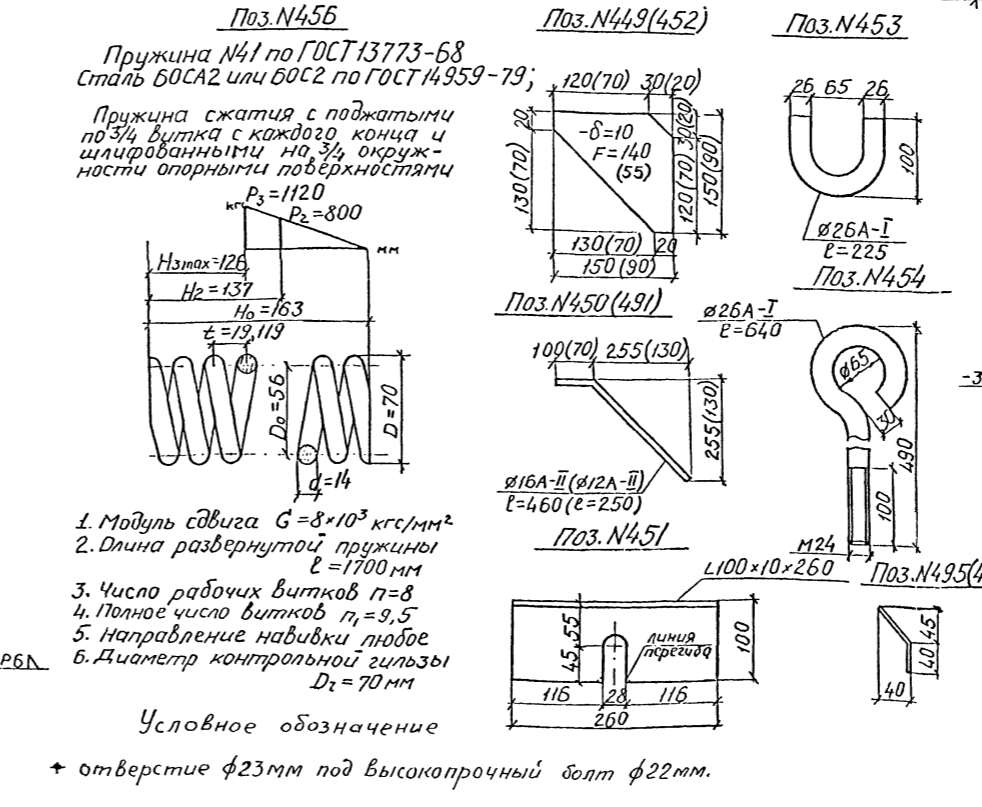 Поз.N456
Пружина N41 по ГОСТ 13773-68
Сталь 60СА2 или 60С2 по ГОСТ 14959-79;
Пружина сжатия с поджатыми
по 3/4 витка с каждого конца и
шлифованными на 3/4 окруж-
ности опорными поверхностями
кгс
P3=1120
P2=800
мм
H3max=126
H2=137
H0=163
t=19,119
D0=56
D=70
d=14
1. Модуль сдвига G=8×10³ кгс/мм²
2. Длина развернутой пружины
ℓ=1700 мм
3. Число рабочих витков n=8
4. Полное число витков n1=9,5
5. Направление навивки любое
6. Диаметр контрольной гильзы
Dг=70мм
Условное обозначение
отверстие ϕ23мм под высокопрочный болт ϕ22мм.
Поз.N449(452)
120(70) 30(20)
20
130(70)
-δ=10
F=140
(55)
30(20)
120(70)
150(90)
130(70) 20
150(90)
Поз.N450(491)
100(70) 255(130)
255(130)
ϕ16А-II(ϕ12А-II)
ℓ=460(ℓ=250)
Поз.N451
L100×10×260
45 55
линия
перегиба
100
116 28 116
260
Поз.N453
26 65 26
100
ϕ26А-I
ℓ=225
Поз.N454
ϕ26А-I
ℓ=640
ϕ65
30
490
100
М24
Поз.N495(4
45
40
40
-3